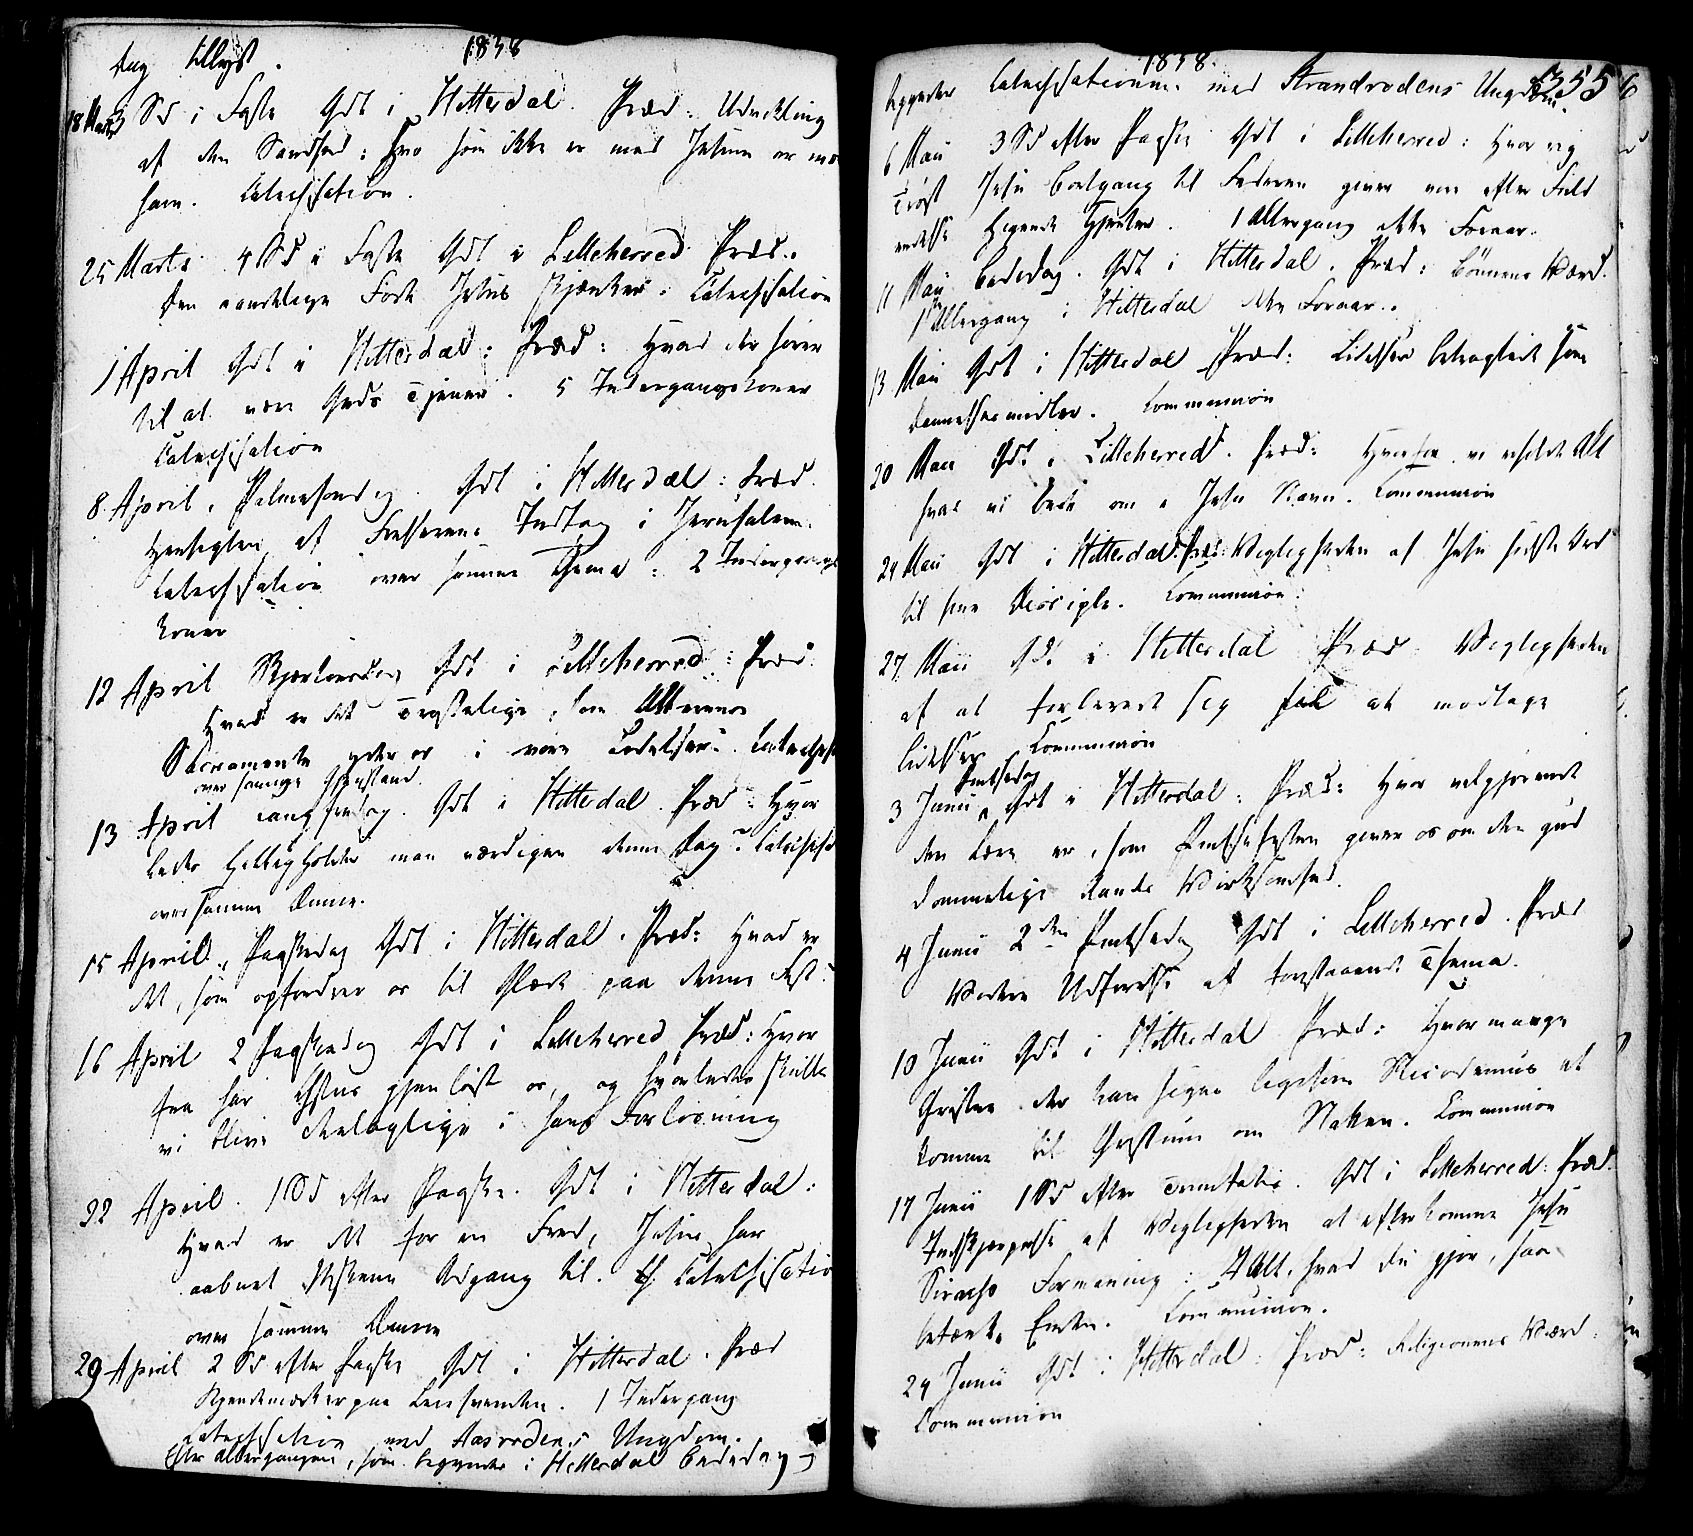 Dag tillyst. 1838
18 Marts 3 Sd i Faste Gdt i Hitterdal. Præd. Udvikling
af den Sandhed: Hvo som ikke er med Jesum er mod
ham. Catechisation.
25 Marts 4 Sd i Faste Gdt i Lilleherred Præd.:
den aandelige Føde Jesus skjænker. Catechisation
1 April Gdt i Hitterdal: Præd: Hvad der hører
til at være Guds Tjener. 5 Indgangskoner
Catechisation
8 April, Palmesondag. Gdt i Hitterdal: Præd.
Hensigten af Frelserens Indtog i Jerusalem.
Catechisation over samme Thema: 2 Indgangs
koner
12 April Skjærtorsdag Gdt i Lilleherred: Præd.
Hvad er det Trøstelige, som Alterens
Sacramente yder os i vore Lidelser.
over samme Gjenstand.
13 April Langfredag. Gdt i Hitterdal. Præd: Hvor
ledes helligholder man værdigen denne Dag?
over samme Emne.
15 April, Paaskedag Gdt i Hitterdal. Præd: Hvad er
det, som opfordrer os til Glæde paa denne Fest?
16 April 2 Paaskedag Gdt i Lilleherred Præd: Hvor
fra har Christus gjenløst os, og hvorledes skulle
vi blive deelagtige i hans Forløsning
22 April. 1 Sd efter Paaske. Gdt i Hitterdal:
Hvad er det for en Fred, Jesus har
aabnet Adgang til. Catechisation
over samme Emne
29 April 2 Sd efter Paaske Gdt i Hitterdal. Præd
Kjendemærker paa 1 Indgang
Catechisation med Aasrodens Ungdom.
Altergangen, som begyndes i Hitterdal Bededag
1838. 355
begyndes Catechisationen med Strandrodens Ungdom.
6 Maii 3 Sd efter Paaske Gdt i Lilleherred: Hvor rig
Trøst Jesu Bortgang til Faderen giver vore efter Fuld
endelse higende Hjerter. 1 Altergang dette Foraar.
11 Maii Bededag. Gdt i Hitterdal. Præd: Bønnens Værd.
1 Altergang i Hitterdal dette Foraar.
13 Maii Gdt i Hitterdal Præd: Lidelser betragtede som
dannelsesmidler. Communion
20 Maii Gdt i Lilleherred. Præd: Hvorfor vi erholde Alt
hvad vi bede om i Jesu Navn. Communion
24 Maii Gdt i Hitterdal. Præd: Vigtigheden af Jesu sidste Ord
til sine Disciple. Communion.
27 Maii Gdt i Hitterdal Præd. Vigtigheden
af at forberede sig paa at modtage
Lidelser Communion
3 Junii Pintsedag Gdt i Hitterdal: Præd: Hvor velgjørende
den Lære er, som Pintsefesten giver os om den gud
dommelige Aands Virksomhed.
4 Junii 2den Pintsedag Gdt i Lilleherred. Præd
Videre Udførelse af forestaaende Thema.
10 Junii Gdt i Hitterdal Præd: Hvor mange
Christne der kan siges ligesom Nicodemus at
komme til Christum om Natten. Communion
17 Junii 1 Sd efter Trinitatis. Gdt i Lilleherred: Præd.
Indskjærpelse af Vigtigheden at efterkomme Jesu
Sirachs Formaning: I Alt, hvad du gjør, saa
betænk Enden. Communion.
24 Junii Gdt i Hitterdal: Præd: Religionens Værd.
Communion